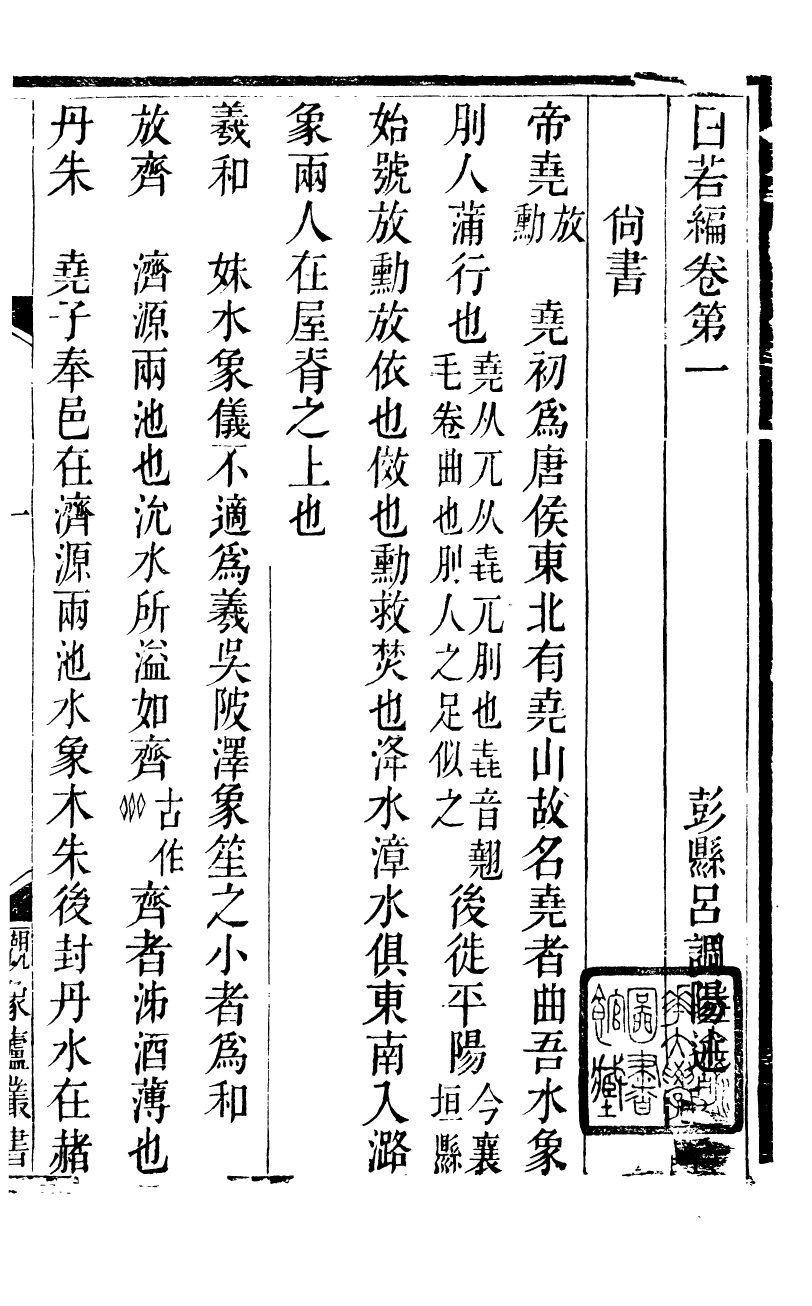 曰若編卷第一
彭縣呂調陽述
尙書
帝堯放勳　堯初爲唐侯東北有堯山故名堯者曲吾水象
刖人蒲行也堯从兀从垚兀刖也垚音翹毛卷曲也刖人之足似之後徙平陽今襄垣縣
始號放勳放依也傚也勳救焚也洚水漳水俱東南入潞
象兩人在屋脊之上也
羲和　妹水象儀不適爲羲吳陂澤象笙之小者爲和
放齊　濟源兩池也沇水所溢如齊古作𠫼齊者泲酒薄也
丹朱　堯子奉邑在濟源兩池水象木朱後封丹水在赭
一
觀象廬叢書